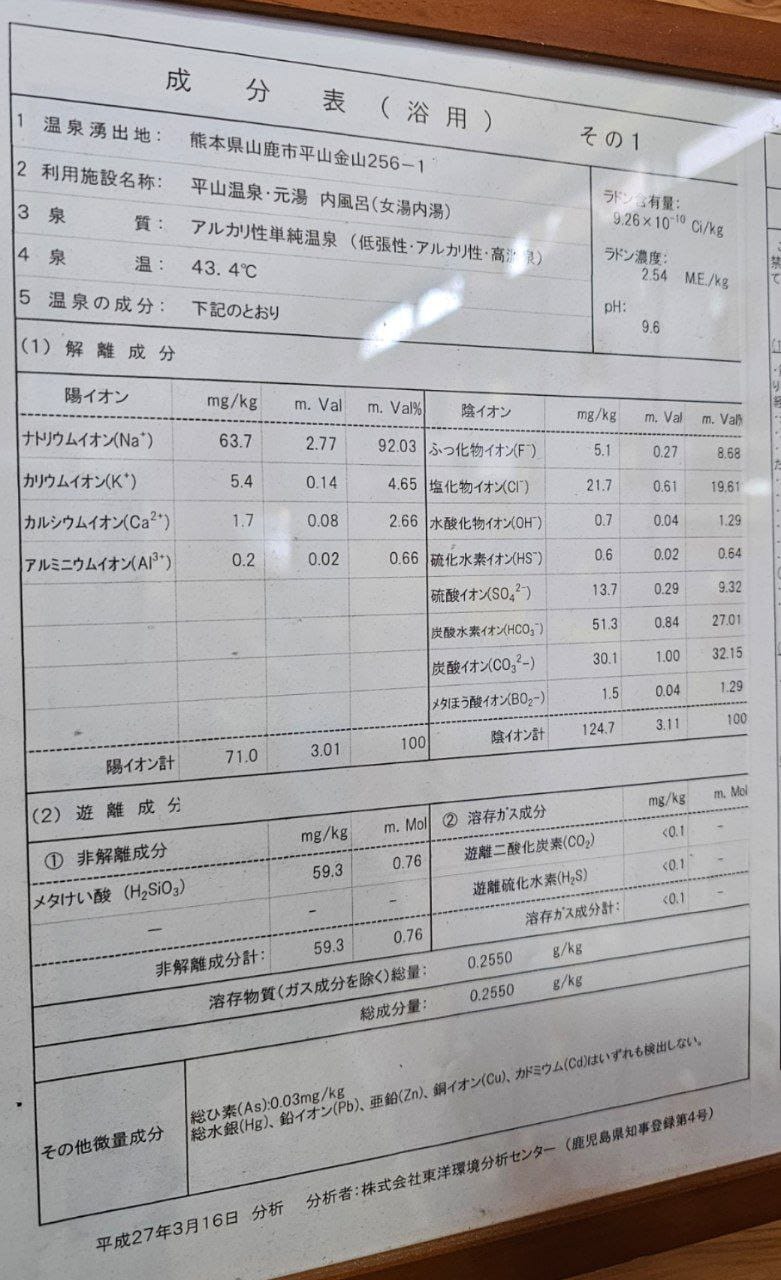 成分表(浴用) その1
1 温泉湧出地: 熊本県山鹿市平山金山256-1
2 利用施設名称: 平山温泉・元湯 内風呂(女湯内湯)
3 泉質: アルカリ性単純温泉 (低張性・アルカリ性・高温泉)
4 泉温: 43.4℃
5 温泉の成分: 下記のとおり
ラドン含有量:
9.26×10⁻¹⁰ Ci/kg
ラドン濃度:
2.54 M.E./kg
pH:
9.6
(1) 解離成分
陽イオン mg/kg m. Val m. Val%
ナトリウムイオン(Na⁺) 63.7 2.77 92.03
カリウムイオン(K⁺) 5.4 0.14 4.65
カルシウムイオン(Ca²⁺) 1.7 0.08 2.66
アルミニウムイオン(Al³⁺) 0.2 0.02 0.66
陽イオン計 71.0 3.01 100
陰イオン mg/kg m. Val m. Val%
ふっ化物イオン(F⁻) 5.1 0.27 8.68
塩化物イオン(Cl⁻) 21.7 0.61 19.61
水酸化物イオン(OH⁻) 0.7 0.04 1.29
硫化水素イオン(HS⁻) 0.6 0.02 0.64
硫酸イオン(SO₄²⁻) 13.7 0.29 9.32
炭酸水素イオン(HCO₃⁻) 51.3 0.84 27.01
炭酸イオン(CO₃²−) 30.1 1.00 32.15
メタほう酸イオン(BO₂−) 1.5 0.04 1.29
陰イオン計 124.7 3.11 100
(2) 遊離成分
① 非解離成分 mg/kg m. Mol
メタけい酸 (H₂SiO₃) 59.3 0.76
− − −
非解離成分計: 59.3 0.76
② 溶存ガス成分 mg/kg m. Mol
遊離二酸化炭素(CO₂) <0.1 −
遊離硫化水素(H₂S) <0.1 −
溶存ガス成分計: <0.1 −
溶存物質(ガス成分を除く)総量: 0.2550 g/kg
総成分量: 0.2550 g/kg
その他微量成分
総ひ素(As):0.03mg/kg
総水銀(Hg)、鉛イオン(Pb)、亜鉛(Zn)、銅イオン(Cu)、カドミウム(Cd)はいずれも検出しない。
平成27年3月16日 分析 分析者:株式会社東洋環境分析センター (鹿児島県知事登録第4号)